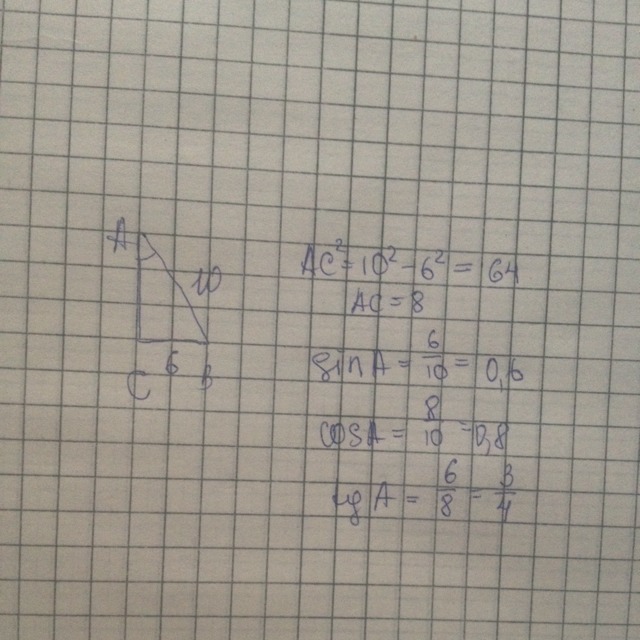 A
10
6
C
B
AC² = 10² - 6² = 64
AC = 8
sin A = 6/10 = 0,6
cos A = 8/10 = 0,8
tg A = 6/8 = 3/4